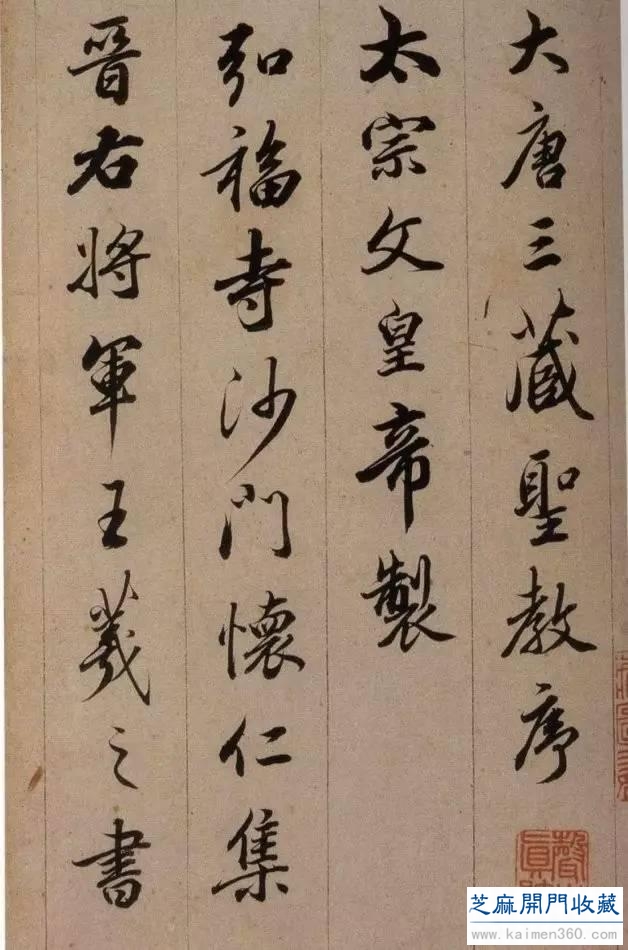 大唐三藏聖教序
太宗文皇帝製
弘福寺沙門懷仁集
晉右將軍王羲之書
芝麻開門收藏
www.kaimen360.com